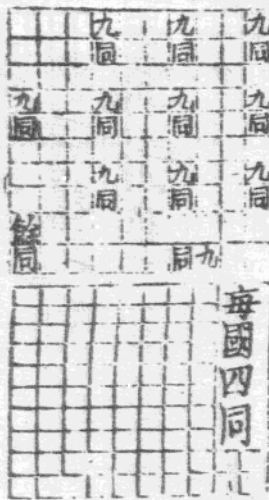 九同
九同
九同
九同
九同
九同
九同
九同
九同
九同
九同
餘同
每國四同